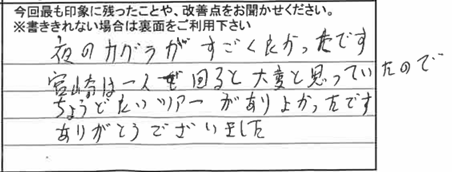 今回最も印象に残ったことや、改善点をお聞かせください。
※書ききれない場合は裏面をご利用下さい
夜のカグラがすごくよかったです
宮崎は一人で回ると大変と思っていたので
ちょうどよいツアーがありよかったです
ありがとうございました